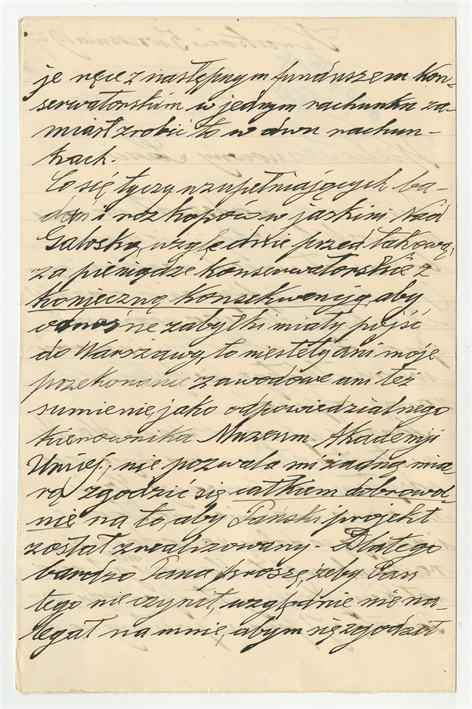 je ręcz z następnym funduszem kon-
serwatorskim w jednym rachunku za-
miast zrobić to w dwu rachun-
kach.
Co się tyczy uzupełniających ba-
dań i rozkopów w jaskini nad
Galoską, względnie przed takową,
za pieniądze konserwatorskie z
konieczną konsekwencją, aby
odnośne zabytki miały pójść
do Warszawy, to niestety ani moje
przekonanie zawodowe ani też
sumienie jako odpowiedzialnego
kierownika Muzeum Akademji
Umiej. nie pozwala mi żadną mia-
rą zgodzić się całkiem dobrowol-
nie na to, aby Pański projekt
został zrealizowany. Dlatego
bardzo Pana proszę, żeby Pan
tego nie czynił, względnie nie na-
legał na mnie, abym się zgodził